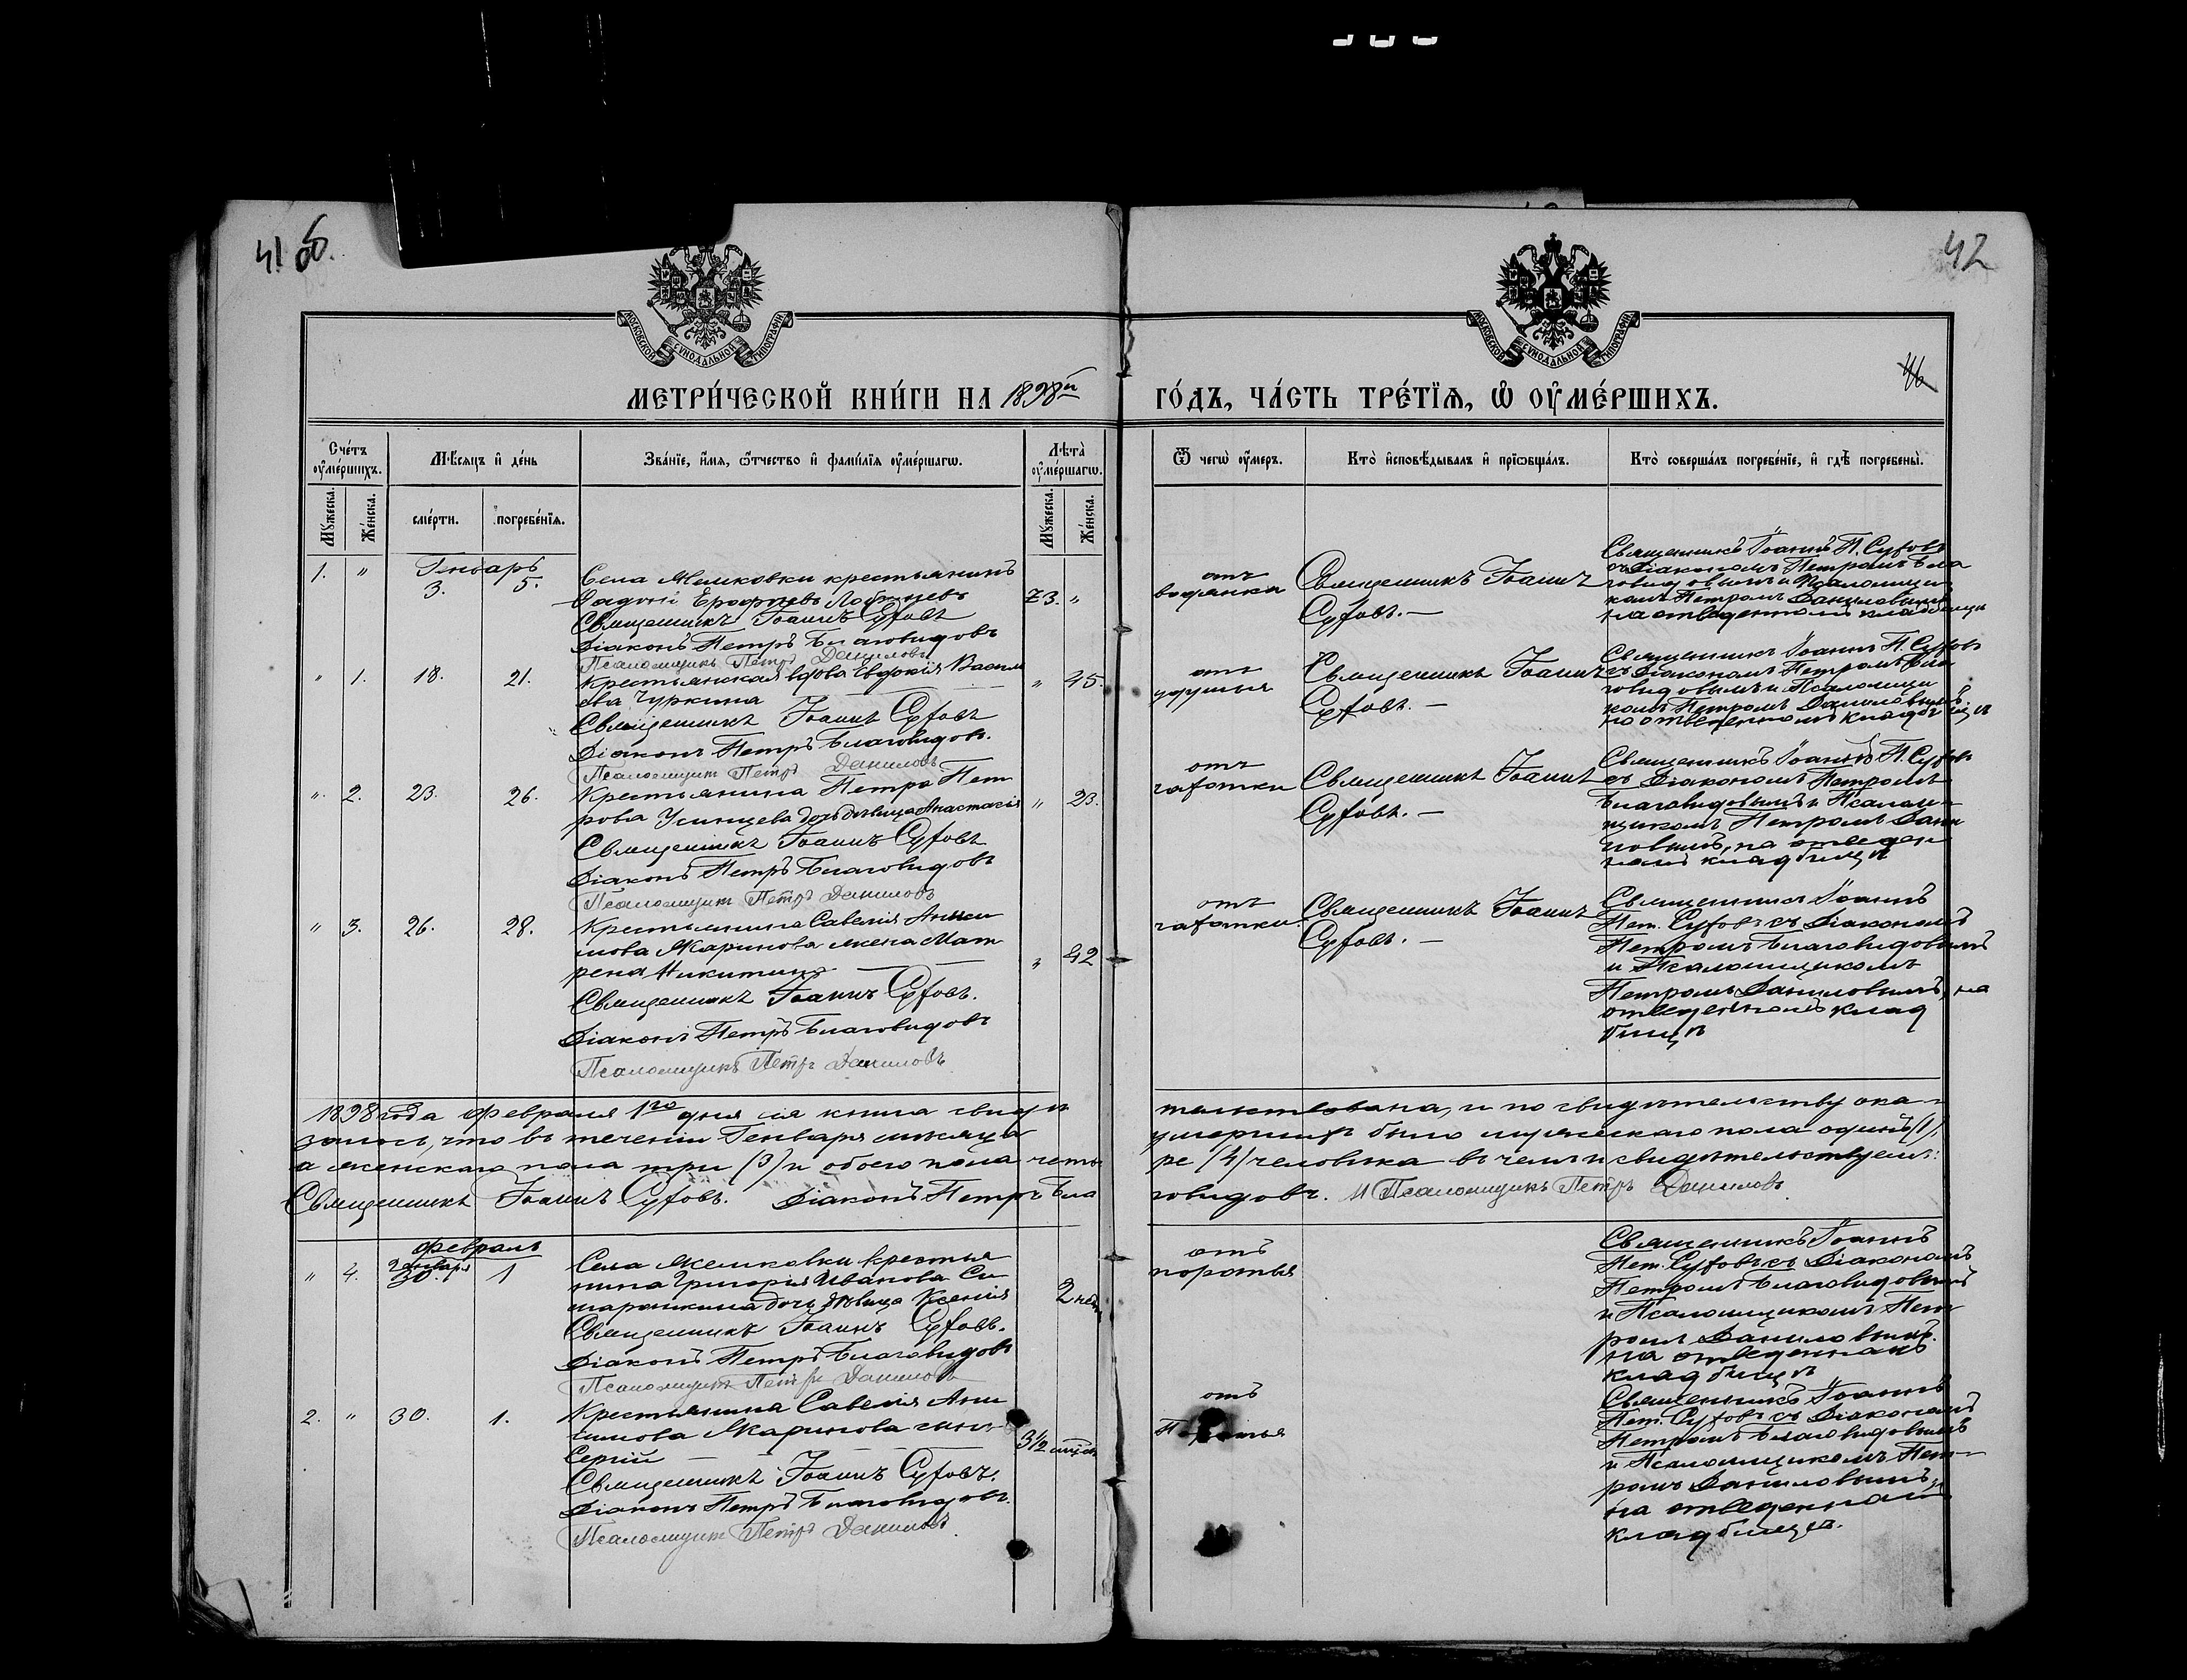 41 об.
42
46
МОСКОВСКОЙ СѴНОДАЛЬНОЙ ТИПОГРАФІИ
МОСКОВСКОЙ СѴНОДАЛЬНОЙ ТИПОГРАФІИ
МЕТРИ́ЧЕСКОЙ КНИ́ГИ НА 1898й ГО́ДЪ, ЧА́СТЬ ТРЕ́ТЇѦ, Ѡ ОУ҆МЕ́РШИХЪ.
Сче́тъ оу҆ме́ршихъ.
Мꙋ́жеска.
Же́нска.
Мѣ́сѧцъ и҆ де́нь
сме́рти.
погребе́нїѧ.
Зва́нїе, и҆́мѧ, ѻ҆́тчество и҆ фамѝлїѧ оу҆ме́ршагѡ.
Лѣ́та оу҆ме́ршагѡ.
Мꙋ́жеска.
Же́нска.
Ѿ чегѡ̀ оу҆́меръ.
Кто̀ и҆сповѣ́дывалъ и҆ прїѡбща́лъ.
Кто̀ соверша́лъ погребе́нїе, и҆ гдѣ̀ погребены̀.
Генварь
1. " 3. 5.
Села Мешковки крестьянинъ
Ерофеевъ
73. "
Священникъ Іоаннъ Суховъ
Діаконъ Петръ Благовидовъ
Псаломщикъ Петръ Даниловъ
отъ
водянки
Священникъ Іоаннъ
Суховъ. —
Священникъ Іоаннъ П. Суховъ
съ Діакономъ Петромъ Бла
говидовымъ и Псаломщи
комъ Петромъ Даниловымъ
на отведенномъ кладбищѣ
" 1. 18. 21.
Крестьянская вдова Евдокія Василь
ева Чуркина
" 45.
Священникъ Іоаннъ Суховъ
Діаконъ Петръ Благовидовъ.
Псаломщикъ Петръ Даниловъ
отъ
удушья
Священникъ Іоаннъ
Суховъ. —
Священникъ Іоаннъ П. Суховъ
съ Діакономъ Петромъ Бла
говидовымъ и Псаломщи
комъ Петромъ Даниловымъ
на отведенномъ кладбищѣ
" 2. 23. 26.
Крестьянина Петра Пет
рова дочь дѣвица Анастасія
" 23.
Священникъ Іоаннъ Суховъ
Діаконъ Петръ Благовидовъ
Псаломщикъ Петръ Даниловъ
отъ
чахотки
Священникъ Іоаннъ
Суховъ. —
Священникъ Іоаннъ П. Суховъ
съ Діакономъ Петромъ
Благовидовымъ и Псалом
щикомъ Петромъ Дани
ловымъ, на отведен
номъ кладбищѣ
" 3. 26. 28.
Крестьянина Савелія Ани
симова Жаринова жена Мат
рена Никитина
" 42
Священникъ Іоаннъ Суховъ.
Діаконъ Петръ Благовидовъ
Псаломщикъ Петръ Даниловъ
отъ
чахотки.
Священникъ Іоаннъ
Суховъ. —
Священникъ Іоаннъ
Пет. Суховъ съ Діакономъ
Петромъ Благовидовымъ
и Псаломщикомъ
Петромъ Даниловымъ, на
отведенномъ клад
бищѣ
1898 года февраля 1го дня сія книга свидѣтельствована, и по свидѣтельству ока-
залось, что въ теченіи Генваря мѣсяца умершихъ было мужескаго пола одинъ (1),
а женскаго пола три (3) и обоего пола четыре (4) человѣка въ чемъ и свидѣтельствуемъ:
Священникъ Іоаннъ Суховъ. Діаконъ Петръ Благовидовъ. И Псаломщикъ Петръ Даниловъ
Февраль
" 4. Января 30. 1
Села Мешковки крестья
нина Григорія Иванова Си
дочь дѣвица Ксенія
2
Священникъ Іоаннъ Суховъ.
Діаконъ Петръ Благовидовъ
Псаломщикъ Петръ Даниловъ
отъ
Священникъ Іоаннъ
Пет. Суховъ съ Діакономъ
Петромъ Благовидовымъ
и Псаломщикомъ Пет
ромъ Даниловымъ.
на отведенномъ
кладбищѣ
2. " 30. 1.
Крестьянина Савелія Ани
симова Жаринова сынъ
Сергій
3½
Священникъ Іоаннъ Суховъ.
Діаконъ Петръ Благовидовъ.
Псаломщикъ Петръ Даниловъ.
отъ
Священникъ Іоаннъ
Пет. Суховъ съ Діакономъ
Петромъ Благовидовымъ
и Псаломщикомъ Пет-
ромъ Даниловымъ,
на отведенномъ
кладбищѣ.